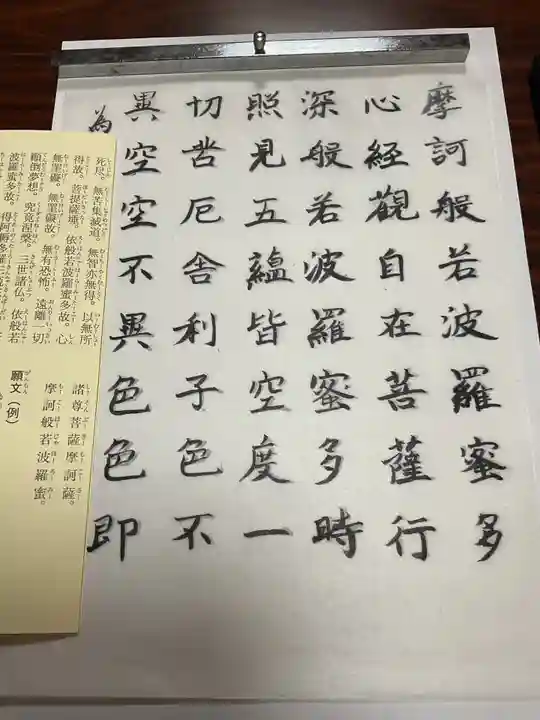 摩訶般若波羅蜜多
心経観自在菩薩行
深般若波羅蜜多時
照見五蘊皆空度一
切苦厄舎利子色不
異空空不異色色即
為
死尽。無苦集滅道。無智亦無得。以無所
得故。菩提薩埵。依般若波羅蜜多故。心
無罣礙。無罣礙故。無有恐怖。遠離一切
顛倒夢想。究竟涅槃。三世諸仏。依般若
波羅蜜多故。得阿耨多羅三
願文（例）
諸尊菩薩摩訶薩。
摩訶般若波羅蜜。